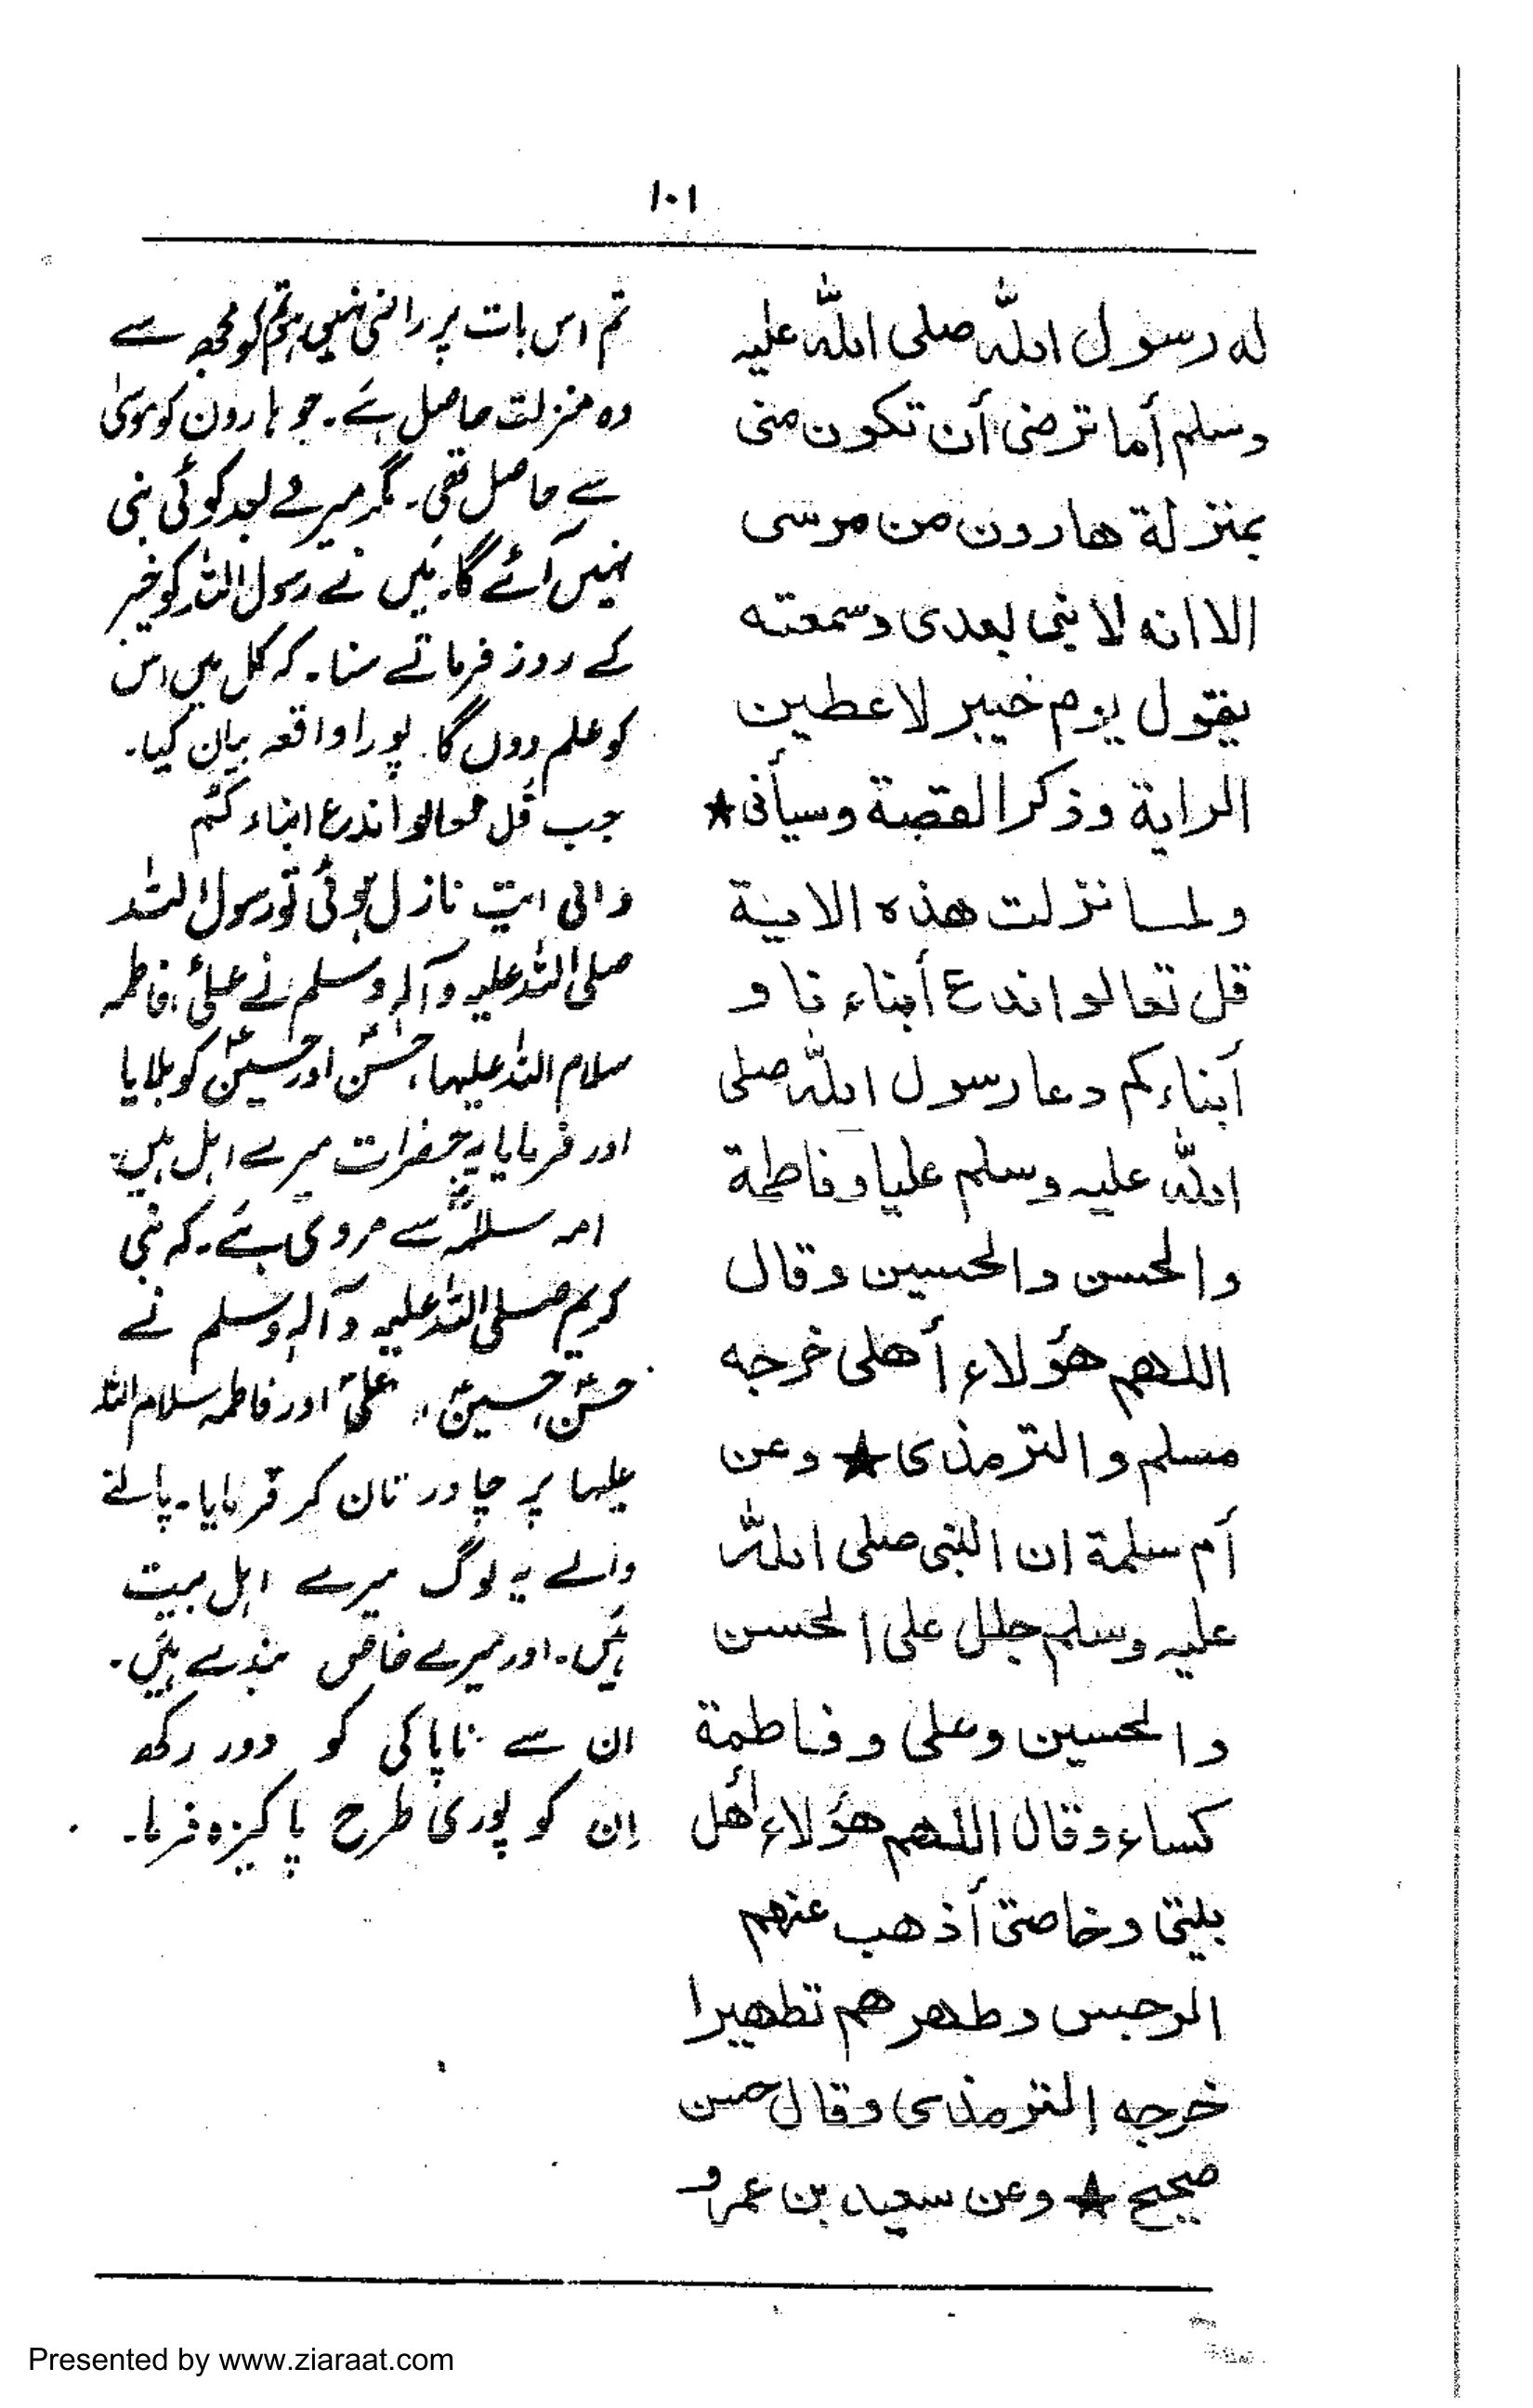 ۱۰۱
له رسول الله صلى الله عليه
وسلم أما ترضى أن تكون منى
بمنزلة هارون من موسى
الا انه لا نبى بعدى وسمعته
يقول يوم خيبر لاعطين
الراية وذكر القصة وسيأتى ★
ولما نزلت هذه الاية
قل تعالوا ندع أبناء نا و
أبناءكم دعا رسول الله صلى
الله عليه وسلم عليا وفاطمة
والحسن والحسين وقال
اللهم هؤلاء أهلى خرجه
مسلم والترمذى ★ وعن
أم سلمة ان النبى صلى الله
عليه وسلم جلل على الحسن
والحسين وعلى وفاطمة
كساء وقال اللهم هؤلاء أهل
بيتى وخاصتى أذهب عنهم
الرجس وطهر هم تطهيرا
خرجه الترمذى وقال حسن
صحيح ★ وعن سعيد بن عمرو
تم اس بات پر راضی نہیں تم کو مجھ سے
وہ منزلت حاصل ہے۔ جو ہارون کو موسیٰ
سے حاصل تھی۔ مگر میرے بعد کوئی نبی
نہیں آئے گا۔ میں نے رسول اللہ کو خیبر
کے روز فرماتے سنا۔ کہ کل میں اس
کو علم دوں گا۔ پورا واقعہ بیان کیا۔
جب قل تعالوا ندع ابناء کم
والی ایت نازل ہوئی تو رسول اللہ
صلی اللہ علیہ وآلہ وسلم نے علیؑ، فاطمہ
سلام اللہ علیہا، حسنؑ اور حسینؑ کو بلایا
اور فرمایا یہ حضرات میرے اہل ہیں۔
امہ سلمہؓ سے مروی ہے۔ کہ نبی
کریم صلی اللہ علیہ وآلہ وسلم نے
حسنؑ، حسینؑ، علیؑ اور فاطمہ سلام اللہ
علیہا پر چادر تان کر فرمایا۔ پالنے
والے یہ لوگ میرے اہل بیت
ہیں۔ اور میرے خاص بندے ہیں۔
ان سے ناپاکی کو دور رکھ
اِن کو پوری طرح پاکیزہ فرما۔
Presented by www.ziaraat.com